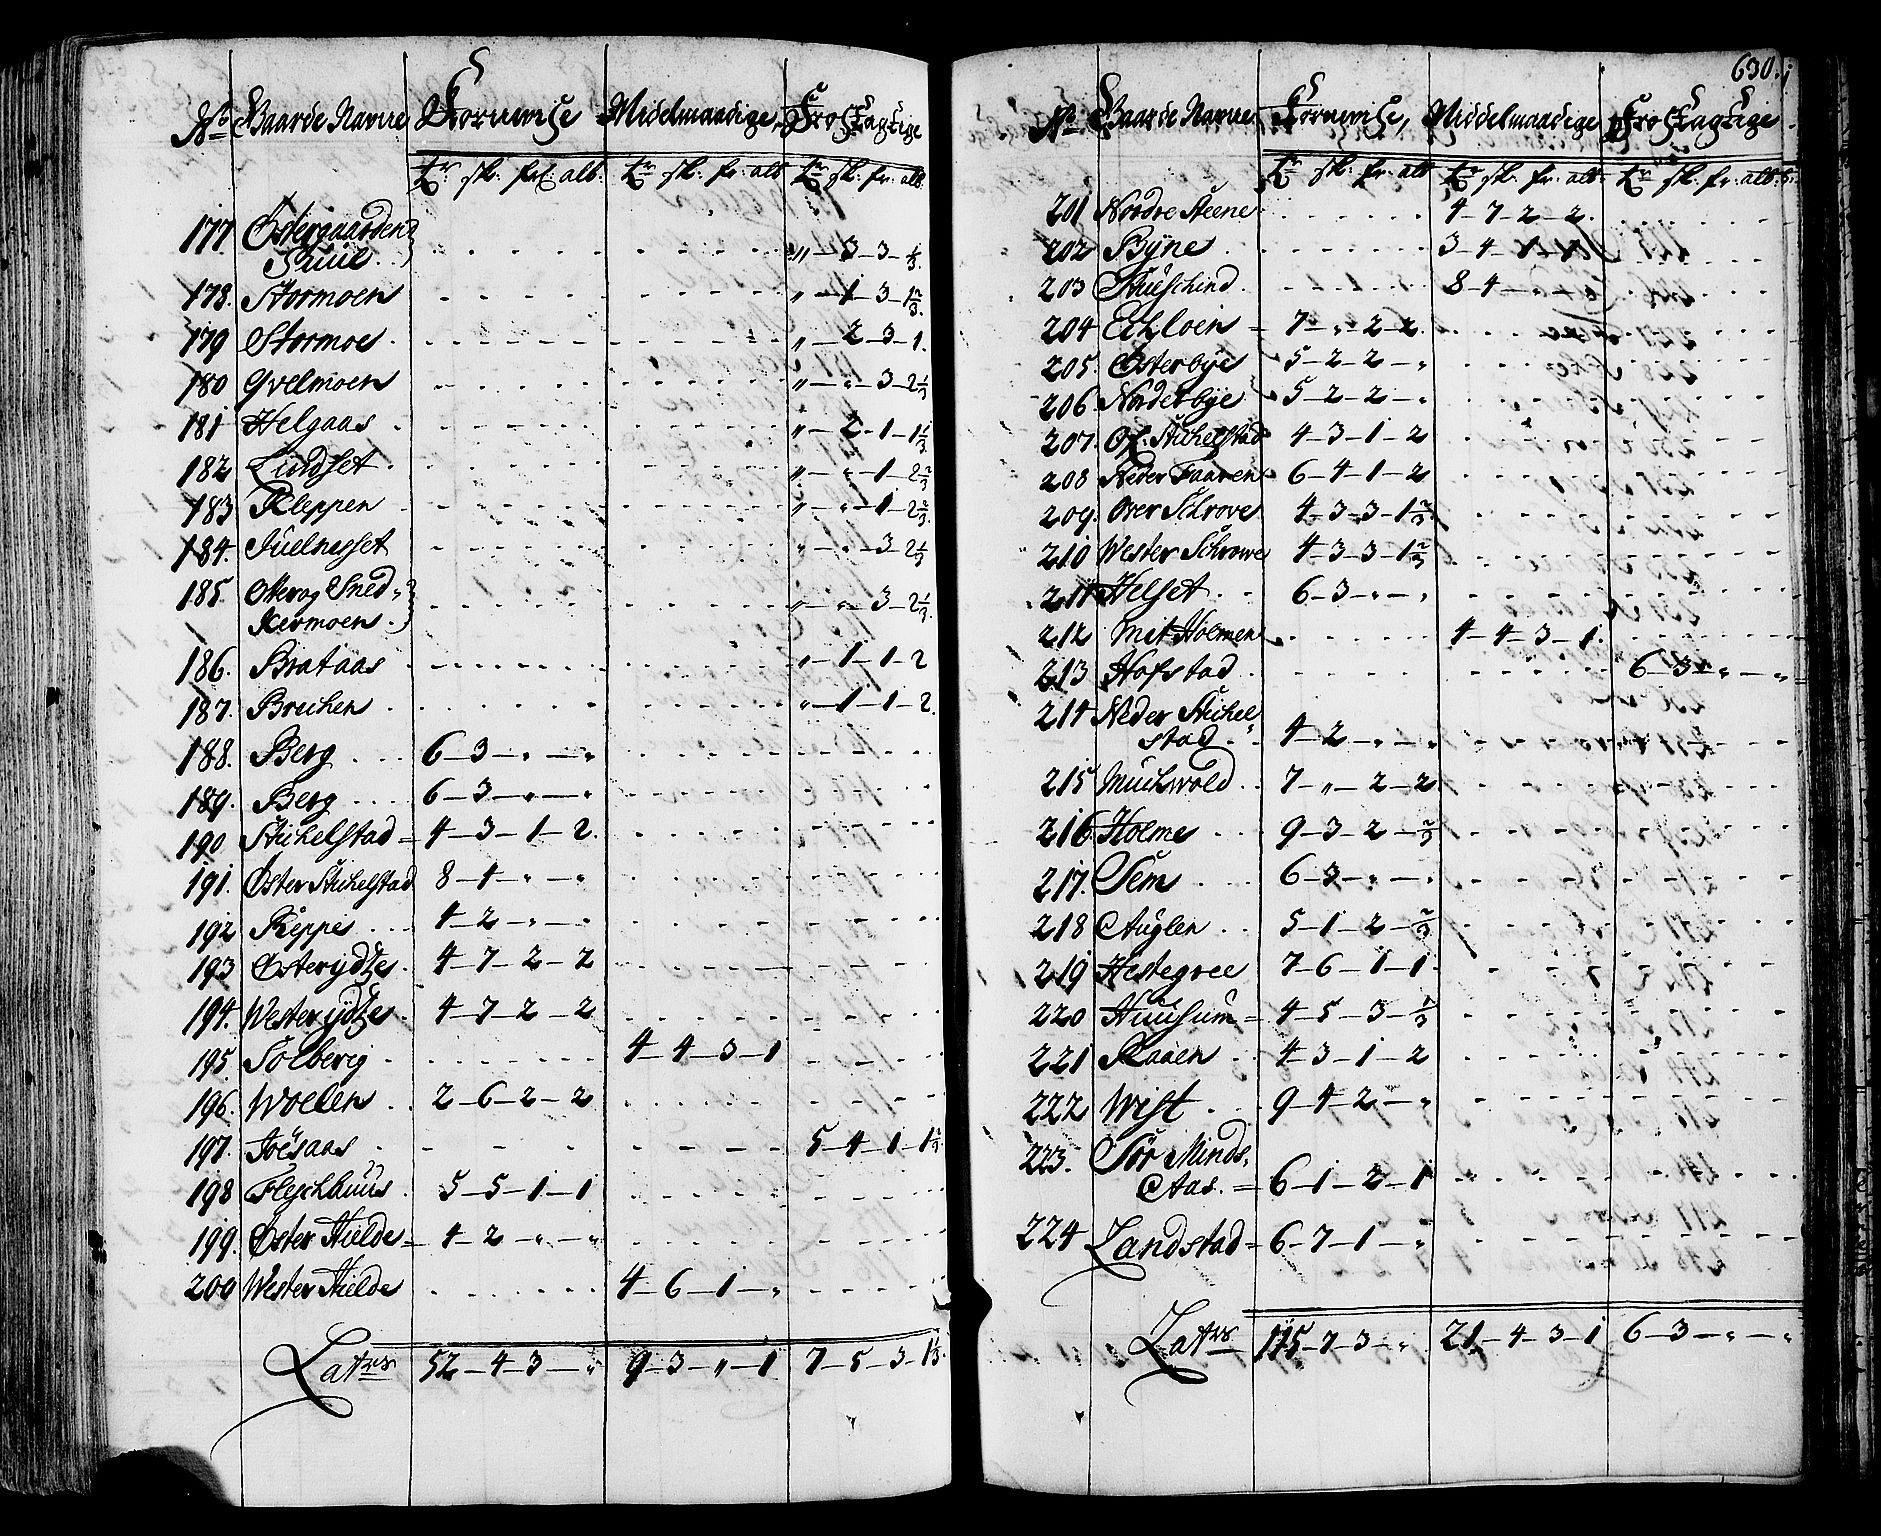 No Gaarde Navne Kornwiße Middelmaadige, Frostagtige
tr sk. frl. alb. tr sk. fr. alb tr sk. fr. alb.
177 Østergaarden
Suul . . . . . . „ - 3 - 3 - 1/3.
178. Stormoen „ - 1 - 3 - 1 2/3.
179 Stormoe „ - 2 - 3 - 1.
180 Qvelmoen „ - „ - 3 - 2 1/3
181 Helgaas „ - 2 - 1 - 1 1/3
182 Lindset „ - „ - 1 - 2 2/3
183 Kleppen „ - „ - 1 - 2 2/3
184. Juelnesset „ - „ - 3 - 2 1/3
185. Otter og Sned-
Kermoen „ - „ - 3 - 2 1/3
186. Brataas „ - 1 - 1 - 2
187. Brechen „ - 1 - 1 - 2.
188. Berg 6 - 3 - „ - „
189. Berg 6 - 3 - „ - „
190 Stichelstad 4 - 3 - 1 - 2.
191. Øster Stichelstad 8 - 4 - „ - „
192 Reppe 4 - 2 - „ - „
193 Østerydtze 4 - 7 - 2 - 2
194. Westerydtze 4 - 7 - 2 - 2
195 Solberig 4 - 4 - 3 - 1
196. Woelen 2 - 6 - 2 - 2
197. Joësaas 5 - 4 - 1 - 1 2/3
198 Fleschhuus 5 - 5 - 1 - 1
199. Øster Hielde 4 - 2 - „ - „
200 Wester Hielde 4 - 6 - 1 - „
Latus 52 - 4 - 3 - „ 9 - 3 - „ - 1 7 - 5 - 3 - 1 1/3.
630.
No Gaarde Navne Kornwiße, Middelmaadige Frostagtige
tr sk. fr. alb tr sk. fr. alb. tr sk. fr. alb.
201 Nordre Steene 4 - 7 - 2 - 2.
202 Byne 3 - 4 - 1 - 1
203 Skieschind 8 - 4 - „ - „
204 Echloen 7 - „ - 2 - 2.
205. Østerbye 5 - 2 - 2 - „
206. Norderbye 5 - 2 - 2 - „
207. Of. Stichelstad 4 - 3 - 1 - 2
208 Neder Faaren 6 - 4 - 1 - 2
209. Over Schrove 4 - 3 - 3 - 1 2/3.
210 Wester Schrowe 4 - 3 - 3 - 1 2/3
211 Helset 6 - 3 - „ - „
212 Mit Holmen 4 - 4 - 3 - 1.
213 Hofstad 6 - 3 - „ - „
214 Neder Stichel
stad 4 - 2 - „ - „
215 Muchwold 7 - „ - 2 - 2
216 Holme 9 - 3 - 2 - 2/3
217. Sem 6 - 3 - „ - „
218 Auglen 5 - 1 - 2 - 2/3
219 Hestegree 7 - 6 - 1 - 1.
220 Huusum 4 - 5 - 3 - 1/3
221 Raaen 4 - 3 - 1 - 2
222 Wist 9 - 4 - 2 - „
223. Sør Minds-
Aas. 6 - 1 - 2 - 1
224 Landstad 6 - 7 - 1 - „
Latus 115 - 7 - 3 - „ 21 - 4 - 3 - 1 6 - 3 - „ - „